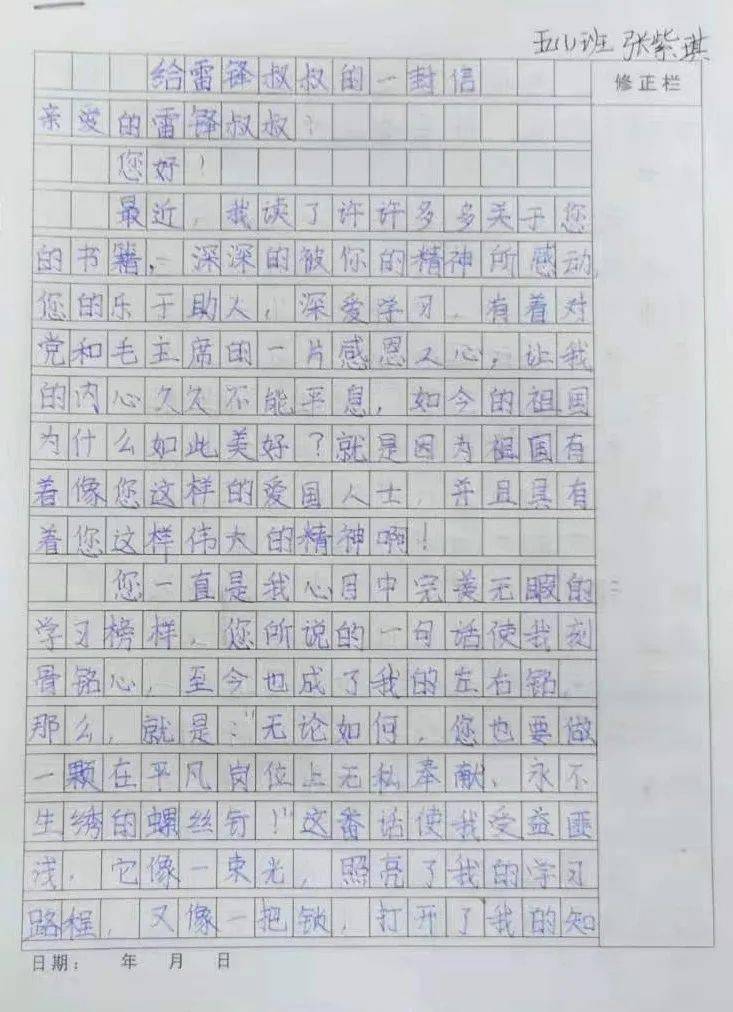 五(1)班 张紫琪
修正栏
给雷锋叔叔的一封信
亲爱的雷锋叔叔：
您好！
最近，我读了许许多多关于您
的书籍，深深的被你的精神所感动，
您的乐于助人，深爱学习，有着对
党和毛主席的一片感恩之心，让我
的内心久久不能平息，如今的祖国
为什么如此美好？就是因为祖国有
着像您这样的爱国人士，并且具有
着您这样伟大的精神啊！
您一直是我心目中完美无暇的
学习榜样，您所说的一句话使我刻
骨铭心，至今也成了我的左右铭，
那么，就是："无论如何，您也要做
一颗在平凡岗位上无私奉献、永不
生绣的螺丝钉！"这番话使我受益匪
浅，它像一束光，照亮了我的学习
路程，又像一把锁，打开了我的知
日期： 年 月 日